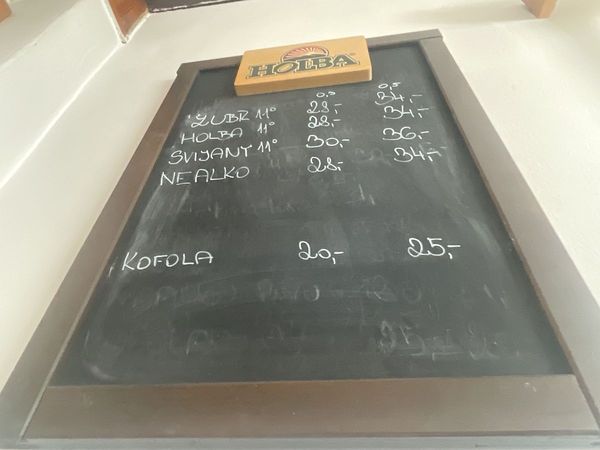 HOLBA
0,3 0,5
ZUBR 11° 28,- 34,-
HOLBA 11° 28,- 34,-
SVIJANY 11° 30,- 36,-
NEALKO 28,- 34,-
KOFOLA 20,- 25,-